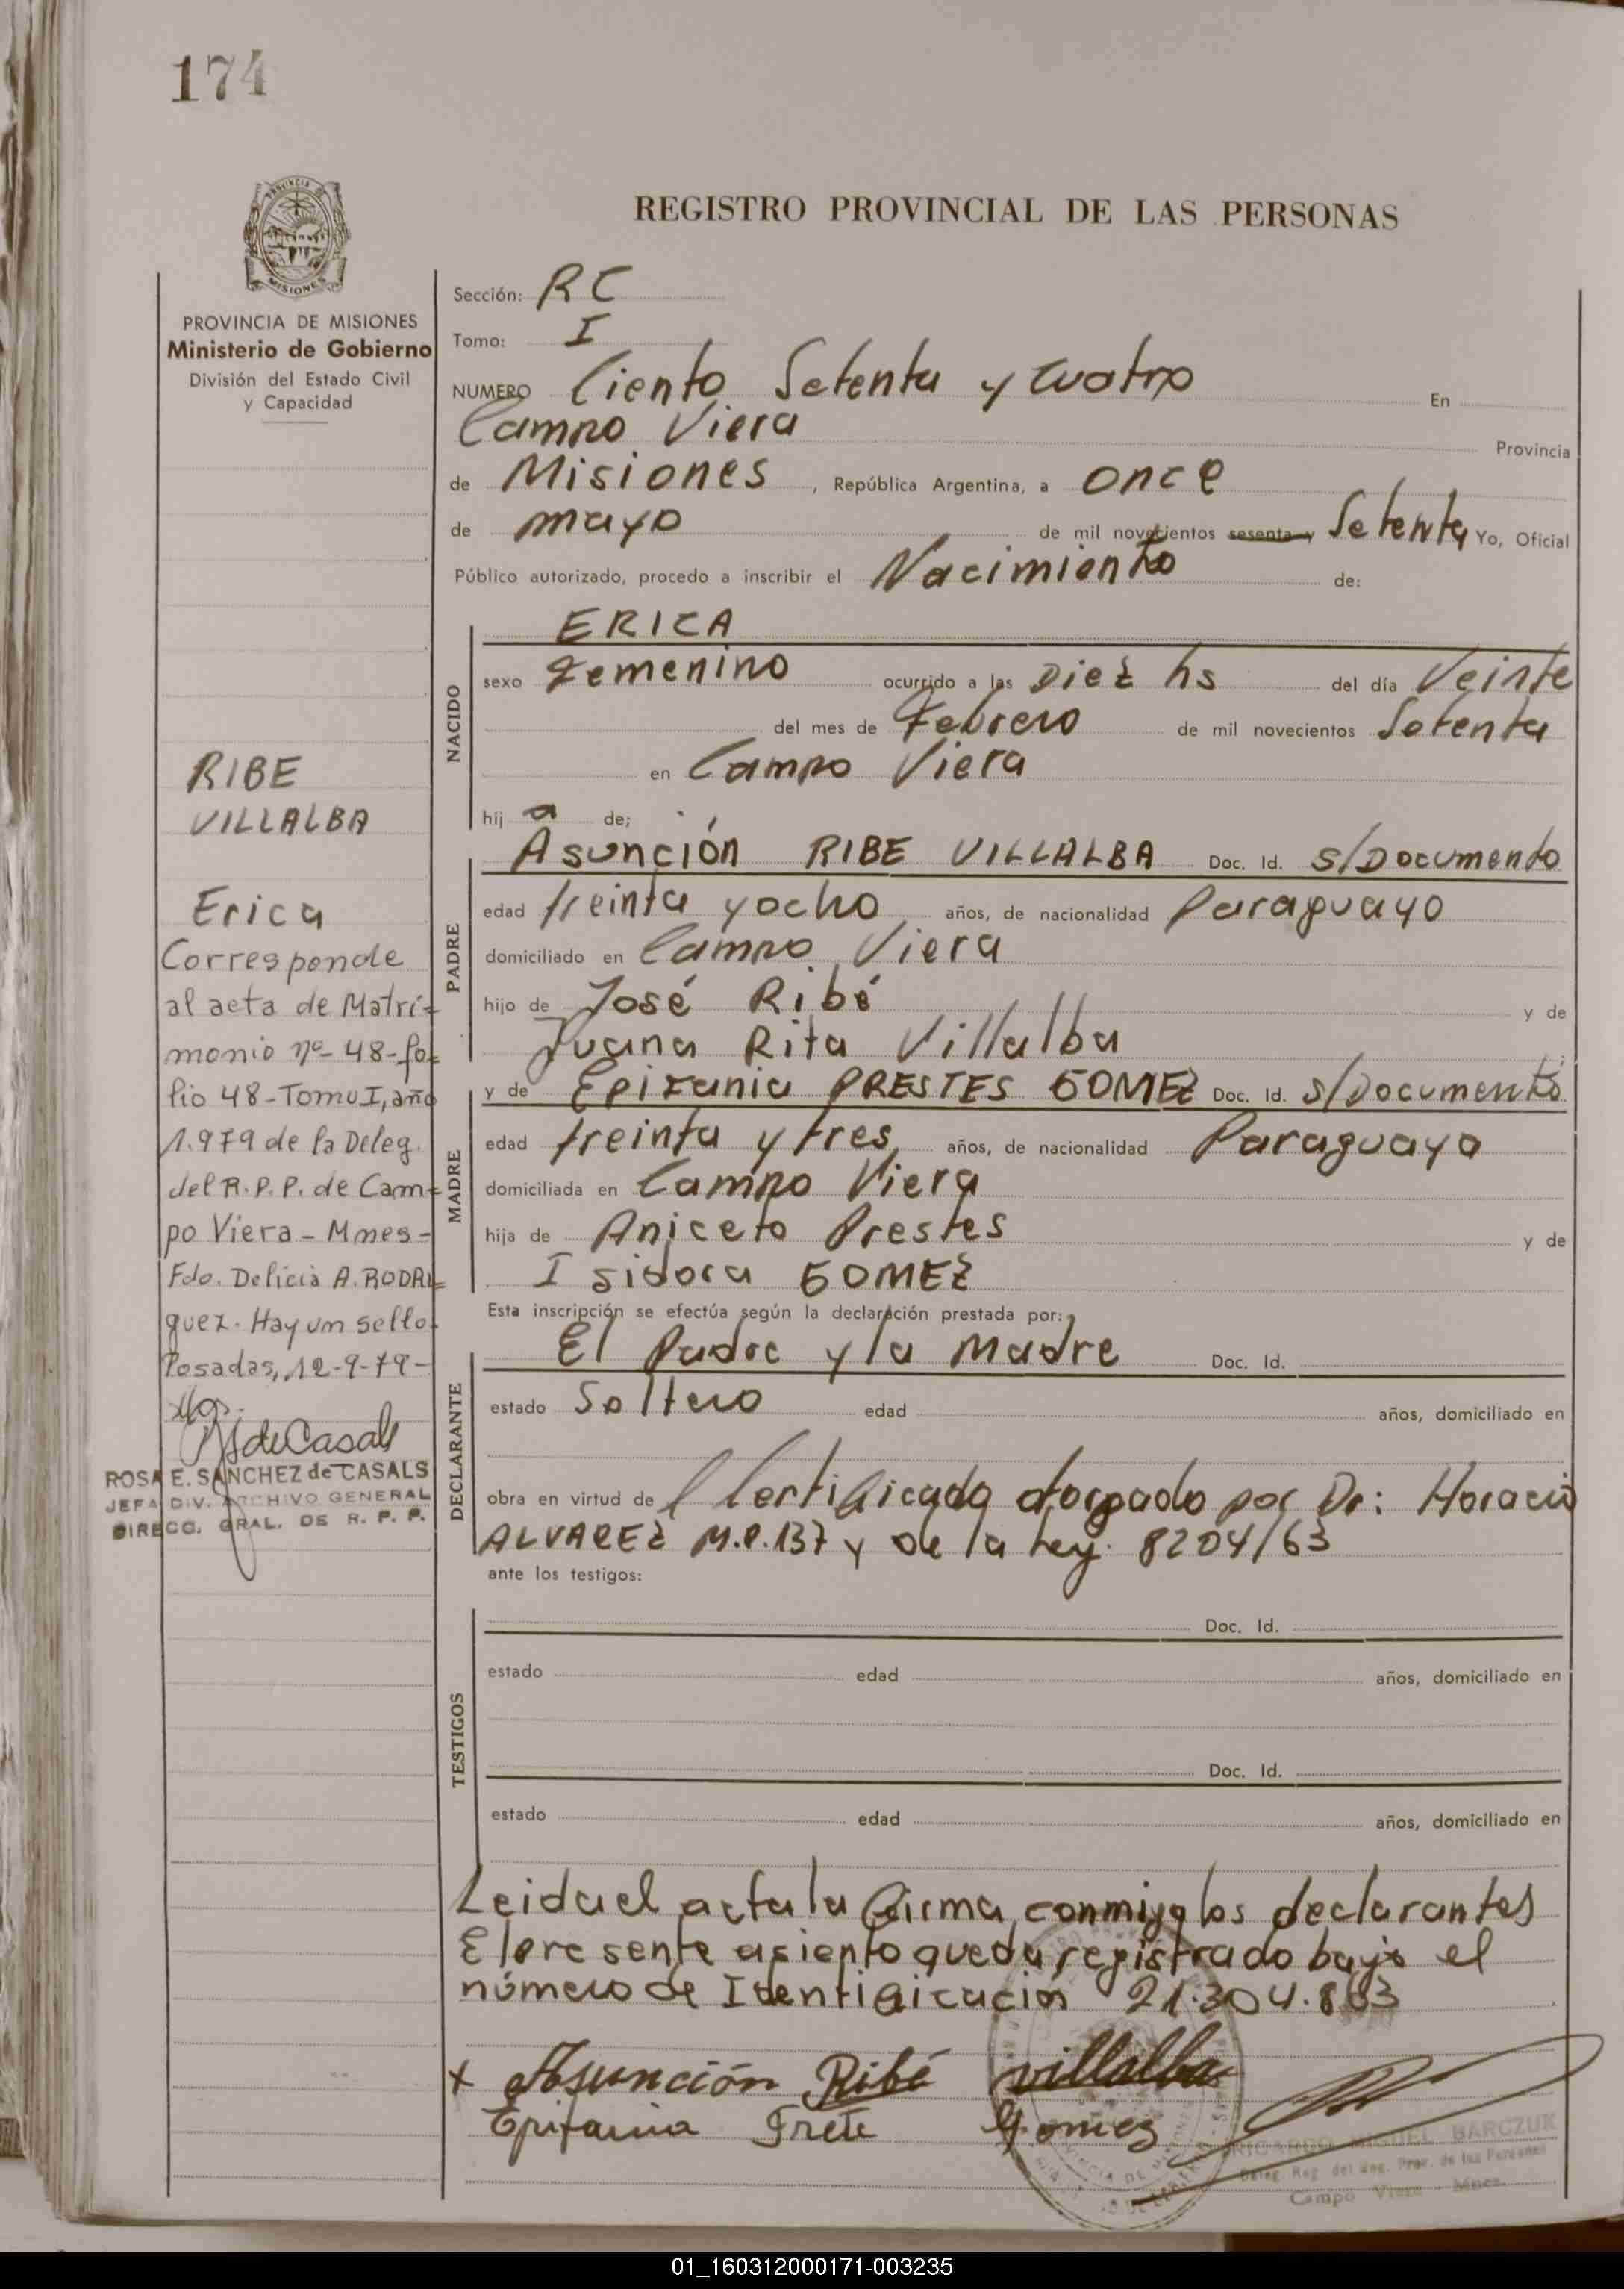 174
REGISTRO PROVINCIAL DE LAS PERSONAS
PROVINCIA DE MISIONES
Ministerio de Gobierno
División del Estado Civil
y Capacidad
RIBE
VILLALBA
Erica
Corresponde
al acta de Matri-
monio nº 48-fo-
lio 48-Tomo I, año
1.979 de la Deleg.
del R.P.P. de Cam-
po Viera - Mnes-
Fdo. Delicia A. RODRI-
guez. Hay un sello.
Posadas, 12-9-79-
ROSA E. SANCHEZ de CASALS
JEFA DIV. ARCHIVO GENERAL
DIRECC. GRAL. DE R. P. P.
Sección: RC
Tomo: I
NUMERO Ciento Setenta y cuatro En
Campo Viera Provincia
de Misiones, República Argentina, a once
de mayo de mil novecientos sesenta y Setenta Yo, Oficial
Público autorizado, procedo a inscribir el Nacimiento de:
NACIDO
ERICA
sexo Femenino ocurrido a las Diez hs del día Veinte
del mes de Febrero de mil novecientos Setenta
en Campo Viera
hij a de;
PADRE
Asunción RIBE VILLALBA Doc. Id. s/Documento
edad treinta y ocho años, de nacionalidad Paraguayo
domiciliado en Campo Viera
hijo de José Ribé y de
Juana Rita Villalba
MADRE
y de Epifania PRESTES GOMEZ Doc. Id. s/Documento
edad treinta y tres años, de nacionalidad Paraguaya
domiciliada en Campo Viera
hija de Aniceto Prestes y de
Isidora GOMEZ
Esta inscripción se efectúa según la declaración prestada por:
DECLARANTE
El Padre y la Madre Doc. Id.
estado Soltero edad años, domiciliado en
obra en virtud de l Certificado otorgado por Dr: Horacio
ALVAREZ M.P.137 y de la Ley. 8204/63
ante los testigos:
TESTIGOS
Doc. Id.
estado edad años, domiciliado en
Doc. Id.
estado edad años, domiciliado en
Leida el acta la firma conmigo los declarantes
El presente asiento queda registrado bajo el
número de Identificación 21.304.863
x Asunción Ribé Villalba
Epifania Frete Gomez
RICARDO MIGUEL BARCZUK
Deleg. Reg. del Reg. Prov. de las Personas
Campo Viera - Mnes.
01_160312000171-003235